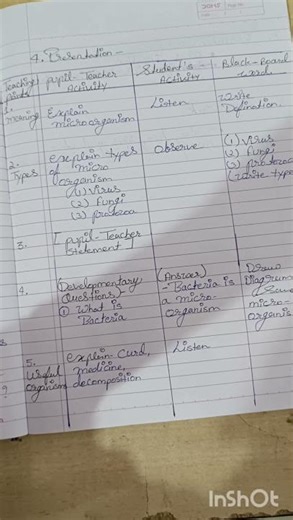 4. Presentation -
Teaching points
pupil-Teacher Activity
Student's - Activity
Black-Board
1.
Explain microorganism
Listen
Write
2. Types
explain types of micro organism
(1) Virus
(2) Fungi
(3) protozoa
Observe
(1) Virus
(2) Fungi
(3) protozoa
3.
pupil-Teacher Statement
4.
(Developmentary Questions)
① What is Bacteria
(Answer)
- Bacteria is a micro-organism
Draw
Diagram
micro-
5. Useful organism
explain curd, medicine, decomposition
Listen
InShOt